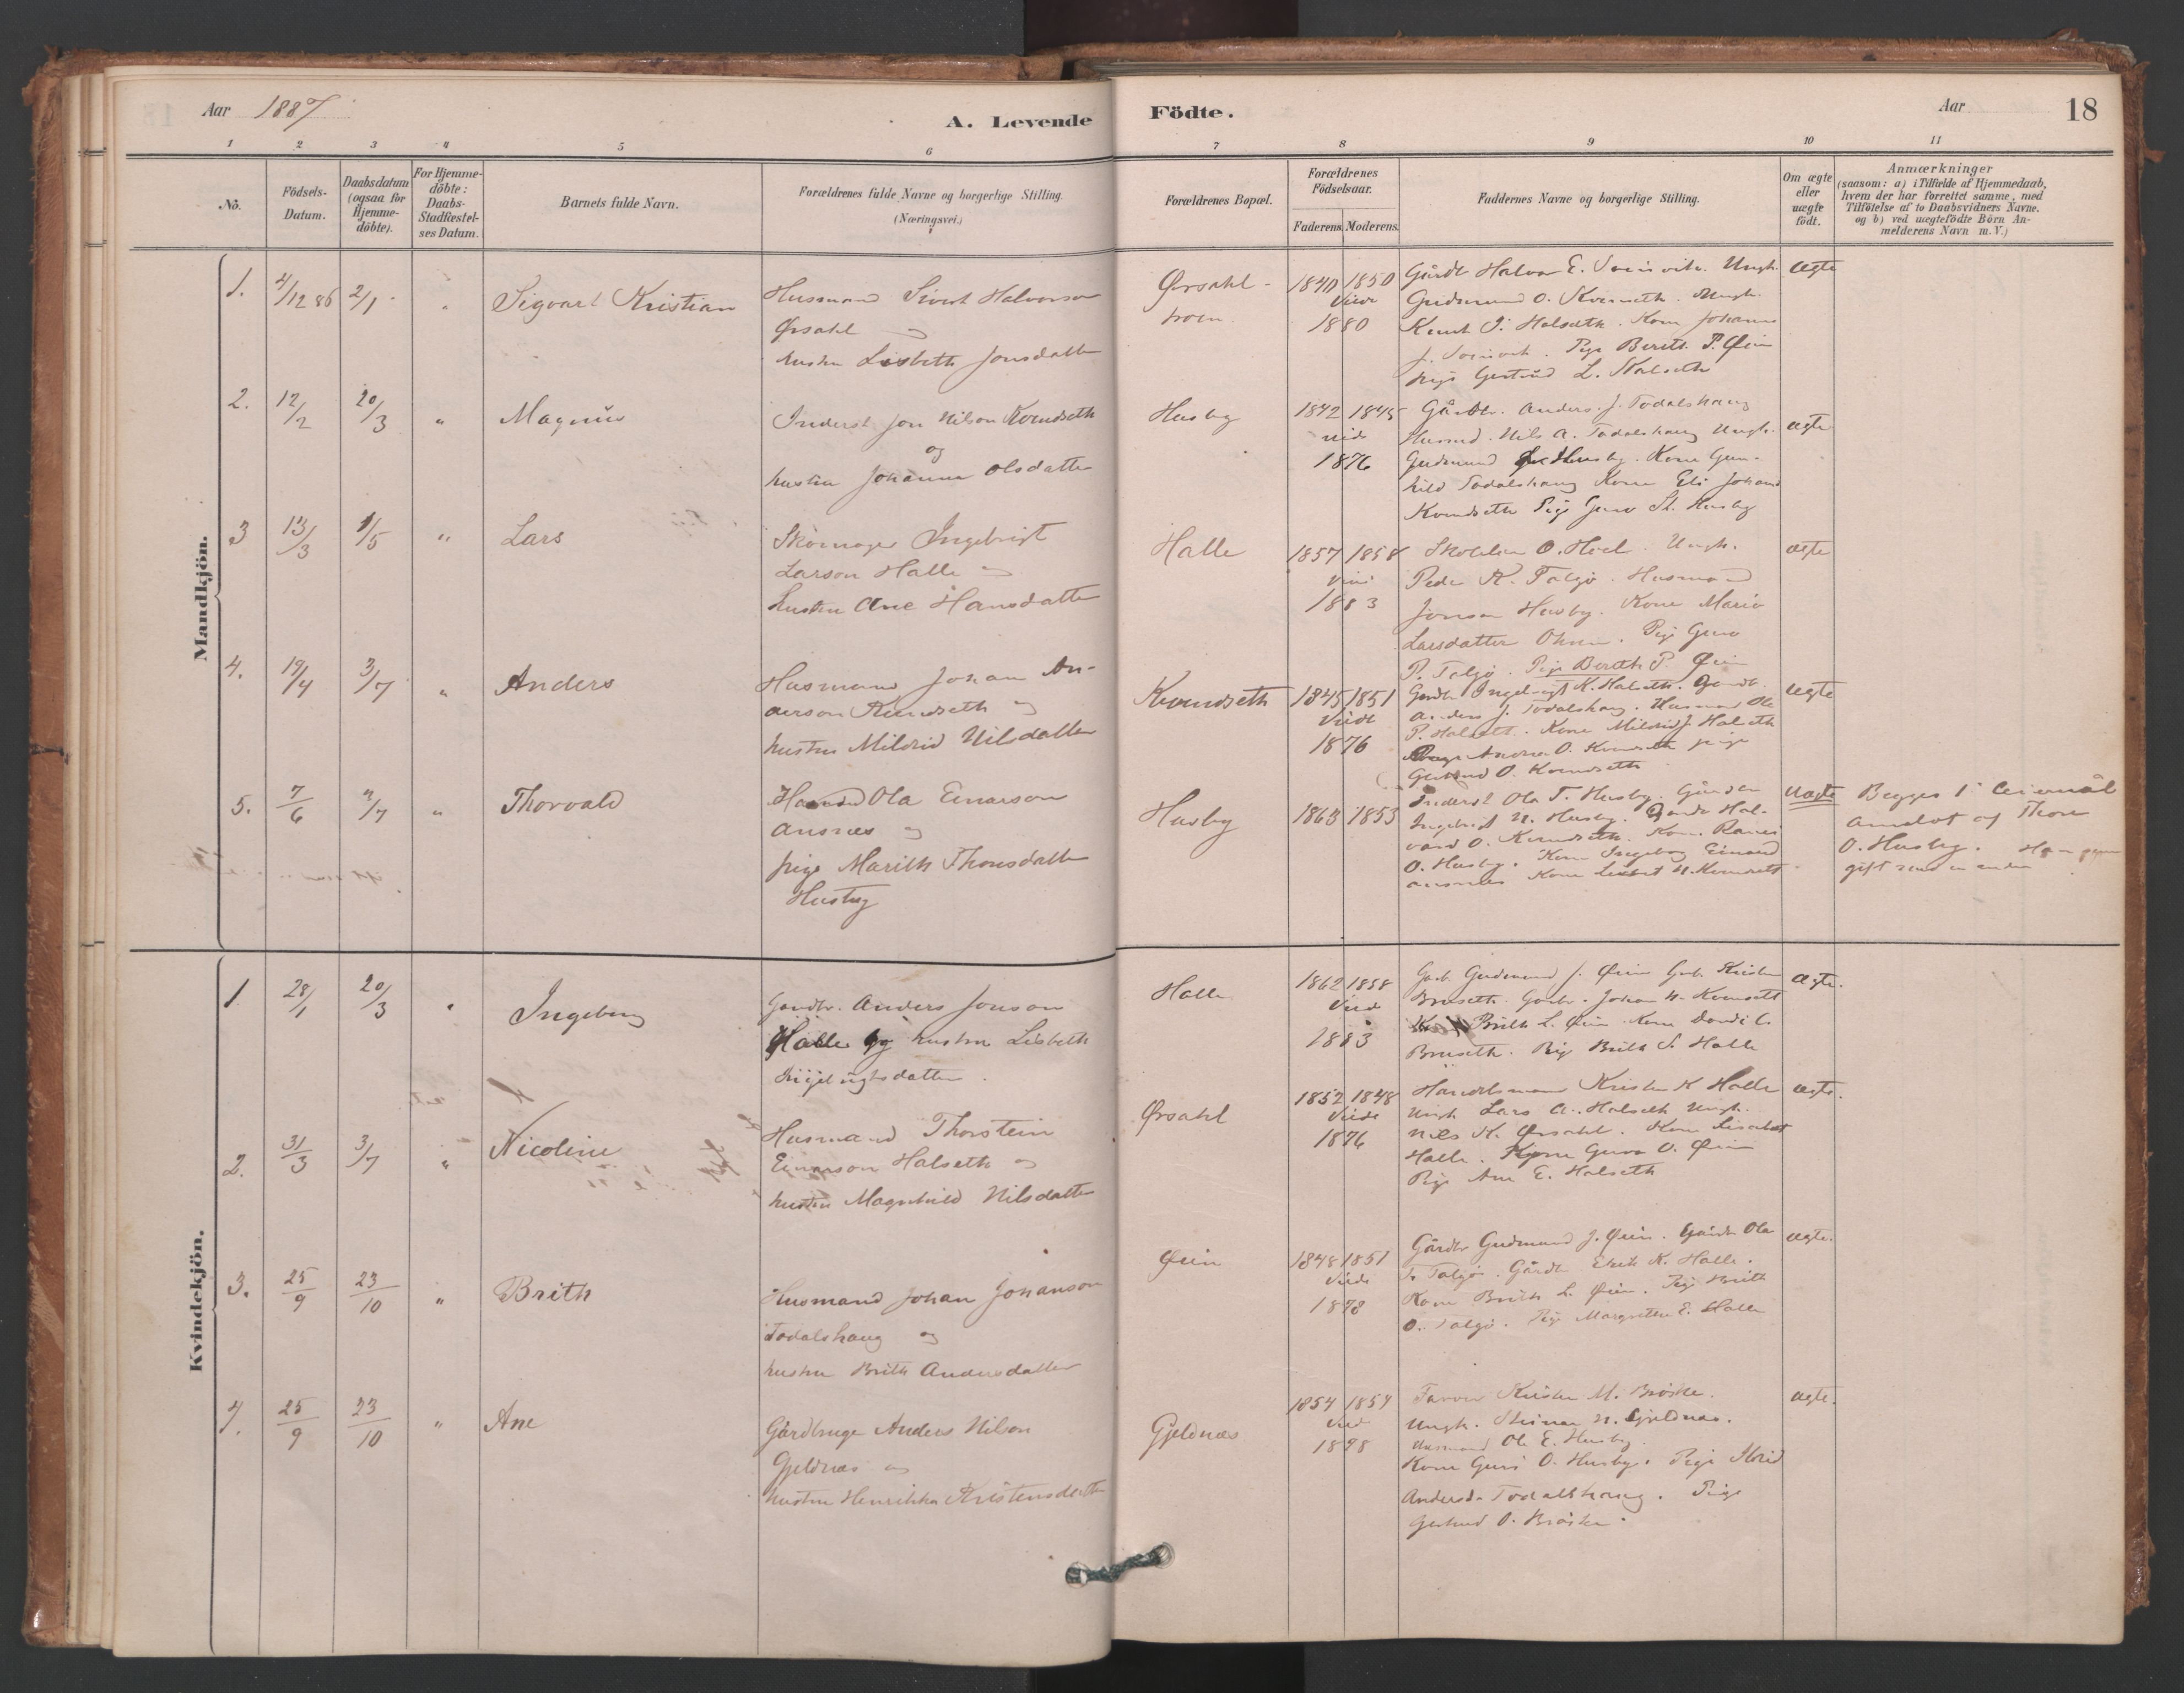 Aar 1887
A. Levende
Födte.
Aar
18
1 2 3 4 5 6 7 8 9 10 11
No.
Födsels-
Datum.
Daabsdatum
(ogsaa for
Hjemme-
döbte).
For Hjemme-
döbte:
Daabs-
Stadfæstel-
ses Datum.
Barnets fulde Navn.
Forældrenes fulde Navne og borgerlige Stilling.
(Næringsvei.)
Forældrenes Bopæl.
Forældrenes
Födselsaar.
Faderens. Moderens.
Faddernes Navne og borgerlige Stilling.
Om ægte
eller
uægte
födt.
Anmærkninger
(saasom: a) i Tilfælde af Hjemmedaab,
hvem der har forrettet samme, med
Tilföielse af to Daabsvidners Navne.
og b) ved uægtefödte Börn An-
melderens Navn m.V.)
Mandkjön.
1. 4/12 86 2/1 " Sigvart Kristian
Husmand Sivert Halvorson
Ørsahl og
hustru Lisbeth Jonsdatter
Ørsahl-
troen
1840 1850
Viede
1880
Gårdbr Halvor E. Ungk.
Gudmund O. Ungk.
Knut J. Halseth. Kone Johanna
J. Pige Bereth P. Øien
Pige Gjertrud L. Halseth
ægte
2. 12/2 20/3 " Magnus
Inderst Jon Nilson Kvendseth
og
hustru Johanna Olsdatter
Husby
1842 1845
viede
1876
Gårdbr. Anders J. Todalshaug
Husmd. Nils A. Todalshaug Ungk.
Gudmund Husby. Kone Gun-
hild Todalshaug Kone Eli Johand
Kvendseth Pige Guro St. Husby
ægte
3 13/3 1/5 " Lars
Skomager Ingebrigt
Larson Halle og
hustru Ane Hansdatter
Halle
1857 1858
Viet
1883
O. Hoel. Ungk.
Peder K. Talgø. Husmand
Jonson Husby. Kone Marie
Larsdatter. Pige Guro
P. Talgø. Pige Bereth P. Øien
ægte
4. 19/4 3/7 " Anders
Husmand Johan An-
derson Kvendseth og
hustru Mildrid Nilsdatter
Kvendseth
1845 1851
Viede
1876
Gårdbr Ingebrigt K. Halseth. Gårdbr.
Anders J. Todalshaug. Husmand Ole
P. Halseth. Kone Mildrid J. Halseth
O. Kvendseth pige
Gjertrud O. Kvendseth
ægte
5. 7/6 3/7 " Thorvald
Ola Einarson
Ansnes og
pige Marith Thoresdatter
Husby
Husby
1863 1853
Inderst Ola T. Husby. Gårdbr
Ingebrigt N. Husby. Gårdbr Hal-
vard O. Kvendseth. Kone
O. Husby. Kone Ingeborg Einarsd
Ansnes Kone N. Kvendseth
uægte
Begges 1 Leiermål
anmeldt af Thore
O. Husby.
gift med en anden
Kvindekjön.
1. 28/1 20/3 " Ingeborg
Gårdbr. Anders Jonson
Halle og hustru Lisbeth
Halle
1862 1858
Viede
1883
Gårb. Gudmund J. Øien Gårb. Kristen
Bruseth. Gårbr. Johan N. Kvenseth
Brith L. Øien. Kone Dordi C.
Bruseth. Pige Brith S. Halle
ægte.
2. 31/3 3/7 " Nicoline
Husmand Thorstein
Einarson Halseth og
hustru Magnhild Nilsdatter
Ørsahl
1852 1848
Viede
1876
Handelsmand Kristen K Halle
Ungk Lars A. Halseth Ungk.
Nils K. Ørsahl. Kone Lisabet
Halle. Kone Guro O. Øien
Pige Ane E. Halseth
ægte.
3. 25/9 23/10 " Brith
Husmand Johan Johanson
Todalshaug og
hustru Brith Andersdatter
Øien
1848 1851
Viede
1878
Gårdbr Gudmund J. Øien. Gårdbr Ola
Talgø. Gårdb Erik K. Halle.
Kone Brith L. Øien. Pige Brith
O. Talgø. Pige Margrethe E. Halle
ægte.
4. 25/9 23/10 " Ane
Gårdbruger Anders Nilson
Gjeldnæs og
hustru Henrikka Kristensdatter
Gjeldnæs
1854 1854
Viet
1878
Farver Kristen M. Brøske.
Ungk. Steinar N. Gjeldnæs.
Husmand Ole E. Husby.
Kone Guro O. Husby. Pige
Andersd. Todalshaug. Pige
Gjertrud O. Brøske.
ægte.